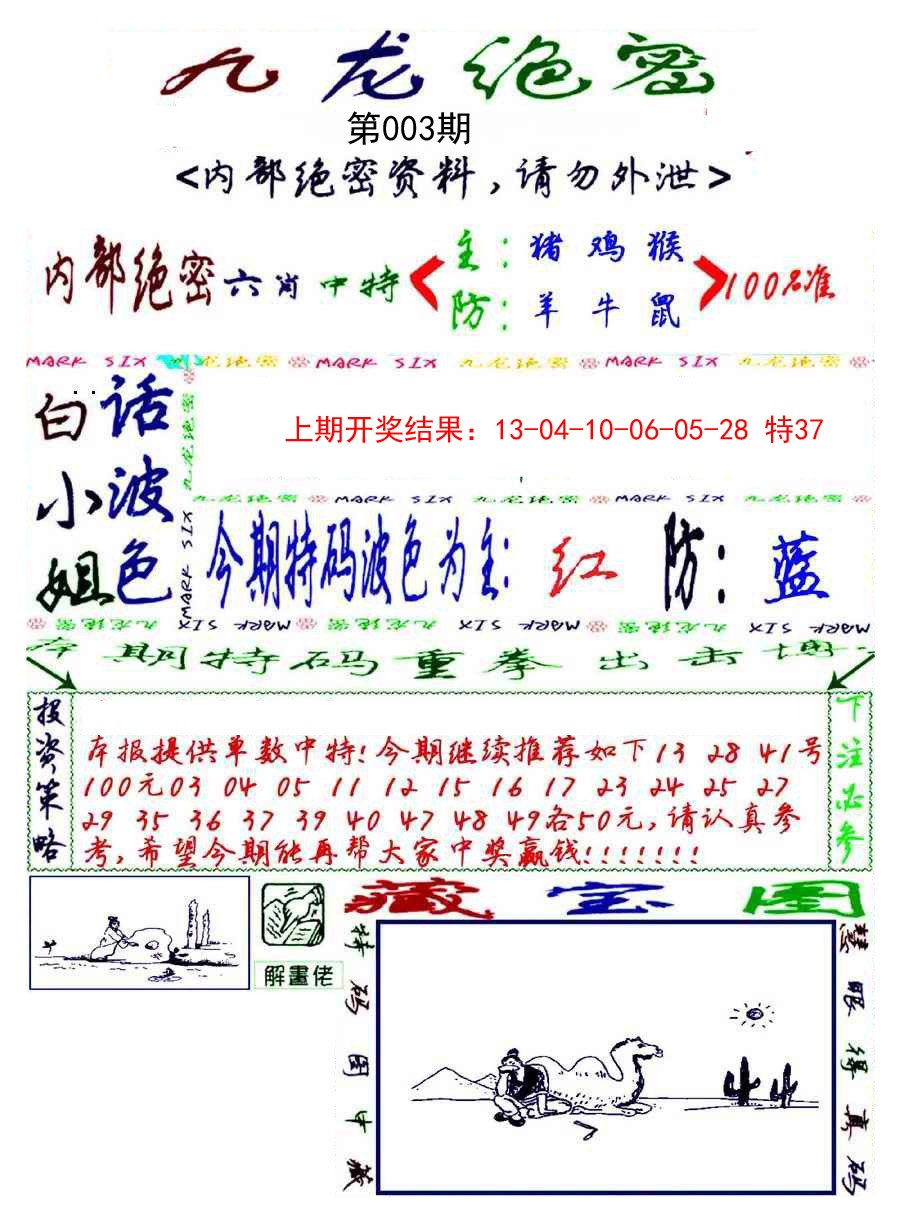 九龙绝密
第003期
<内部绝密资料,请勿外泄>
内部绝密六肖中特
主:猪鸡猴
防:羊牛鼠
100%准
MARK SIX 九龙绝密 MARK SIX 九龙绝密 MARK SIX 九龙绝密
白话
小波
姐色
九龙绝密
MARK SIX
上期开奖结果：13-04-10-06-05-28 特37
九龙绝密 MARK SIX 九龙绝密 MARK SIX 九龙绝密
今期特码波色为主:红 防:蓝
九龙绝密 MARK SIX 九龙绝密 MARK SIX 九龙绝密 MARK SIX
本期特码重拳出击
投资策略
本报提供单数中特!今期继续推荐如下13 28 41号
100元03 04 05 11 12 15 16 17 23 24 25 27
29 35 36 37 39 40 47 48 49各50元,请认真参
考,希望今期能再帮大家中奖赢钱!!!!!!!
下注必参
解畫佬
藏宝图
特码图中藏
慧眼得真码